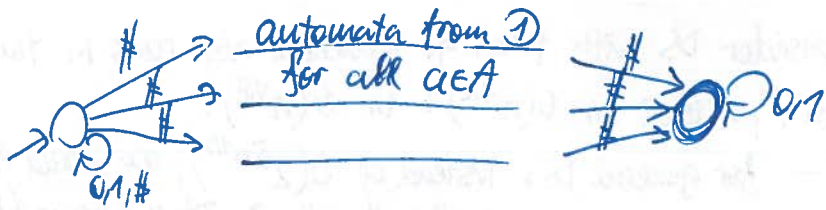 # automata from ①
# for all a∈A #
# #
0,1,# # 0,1